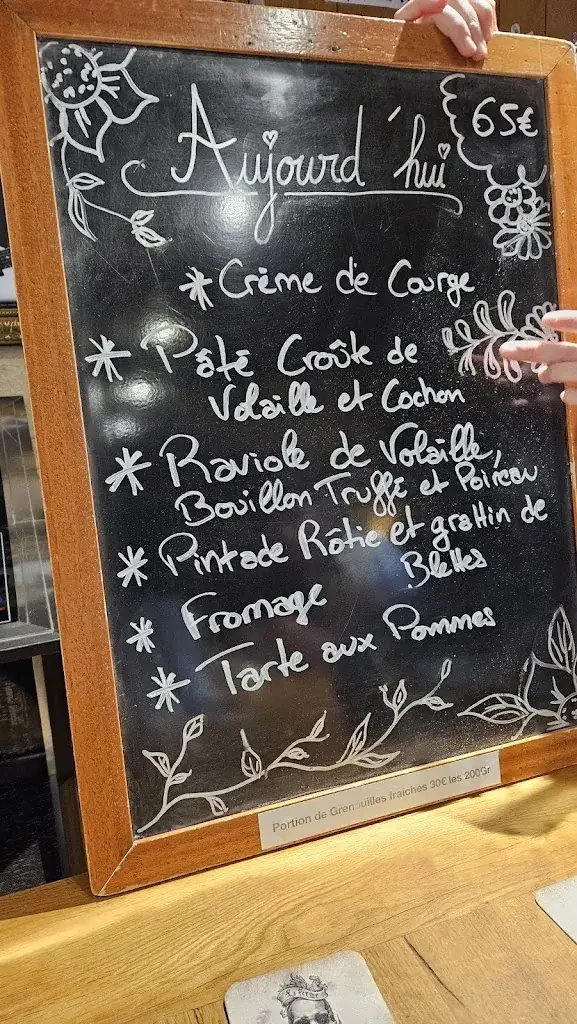 Aujourd'hui
65€
* Crème de Courge
* Pâté Croûte de
Volaille et Cochon
* Raviole de Volaille,
Bouillon Truffé et Poireau
* Pintade Rôtie et grattin de
Blettes
* Fromage
* Tarte aux Pommes
Portion de Grenouilles fraiches 30€ les 200Gr